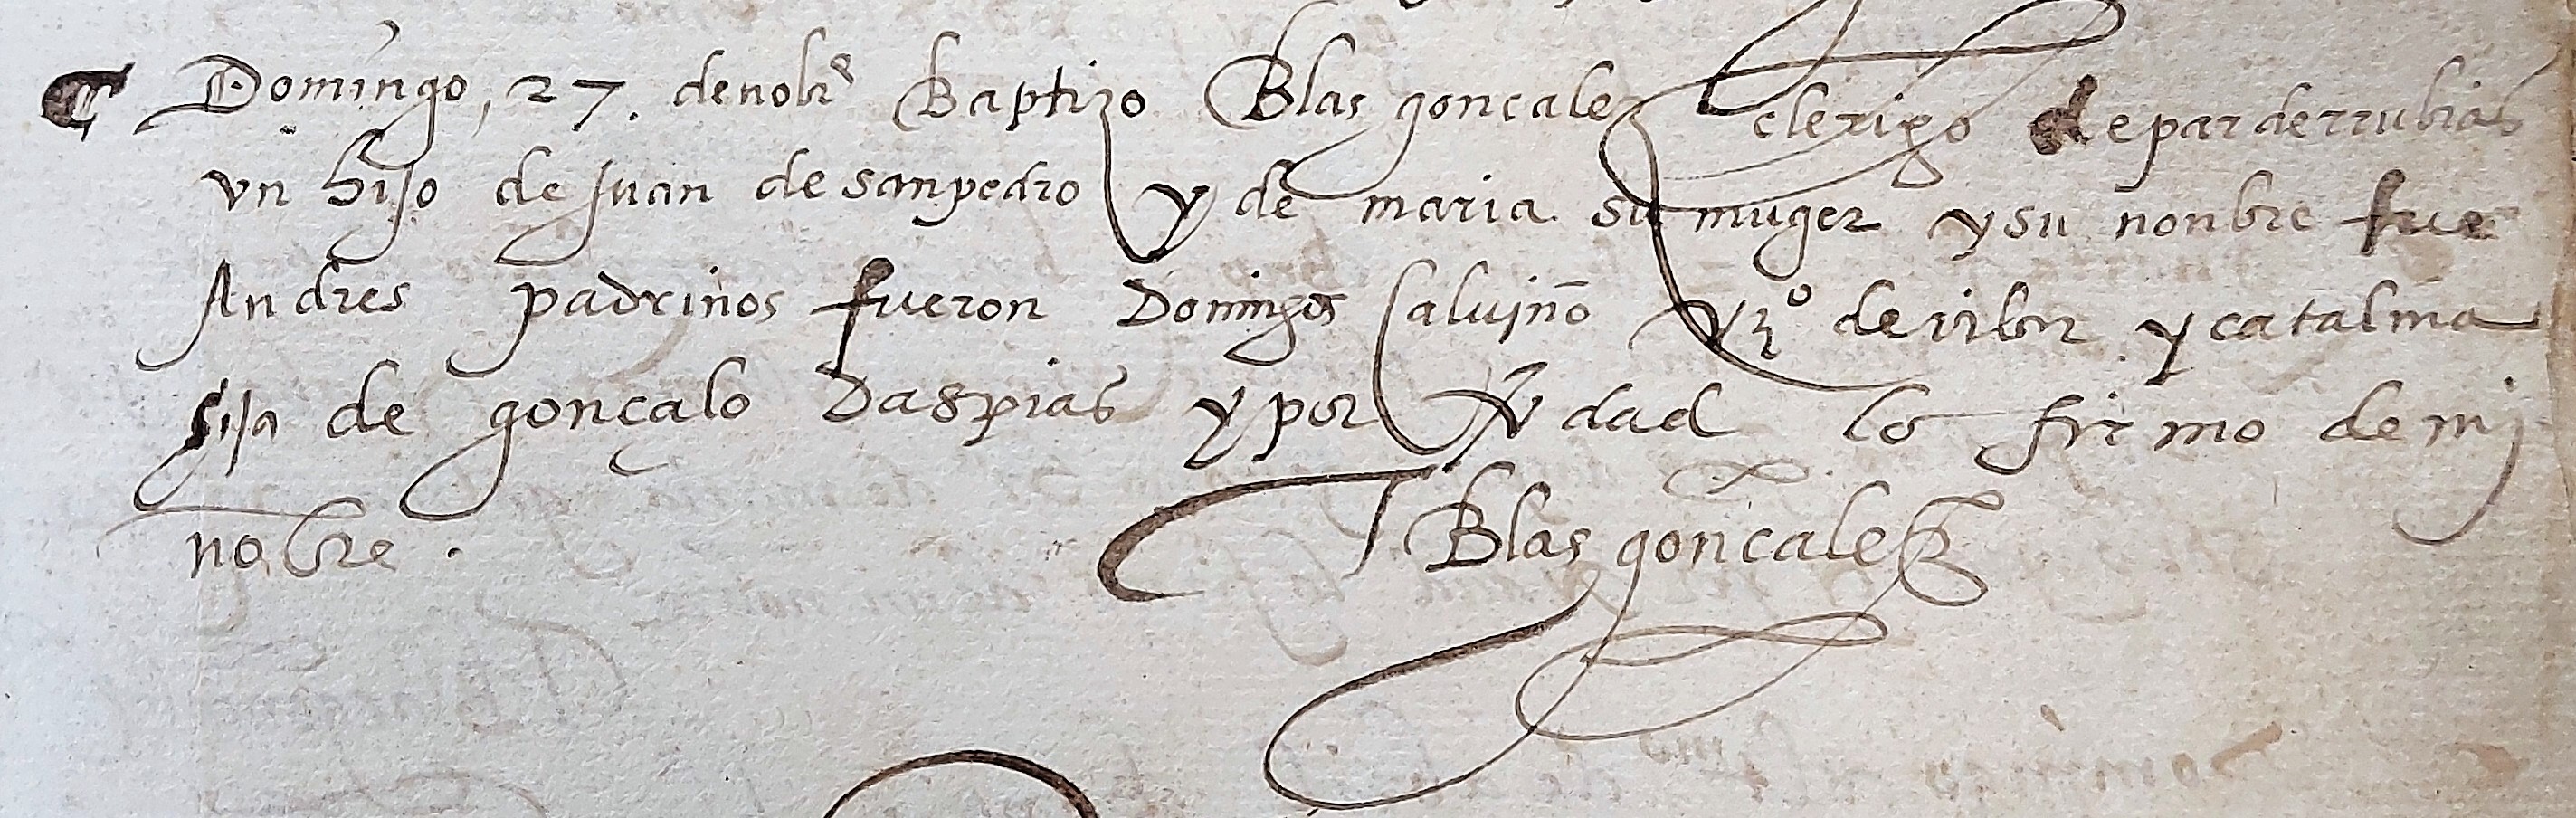 Domingo, 27. de nobre Baptizo Blas gonçalez clerigo de parderrubias
vn hijo de Juan de san pedro y de maria su muger y su nonbre fue
Andres padrinos fueron Domingos Salviño vzº de y catalina
hija de gonçalo Daspias y por vdad lo firmo de mi
nobre.
Blas gonçalez